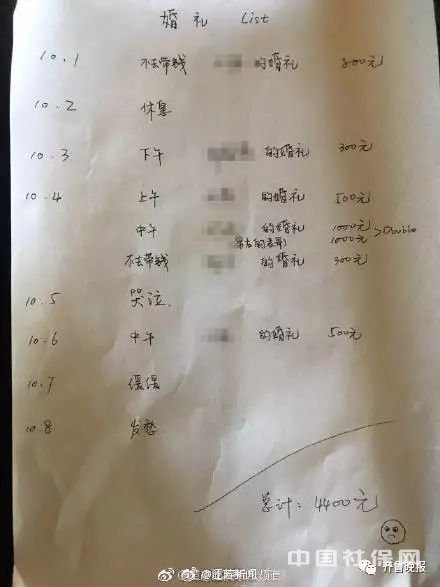 婚礼 List
10.1 不去带钱 的婚礼 800元
10.2 休息
10.3 下午 的婚礼 300元
10.4 上午 的婚礼 500元
中午 的婚礼 1000元 >Double
的表哥) 1000元
不去带钱 的婚礼 300元
10.5 哭泣.
10.6 中午 的婚礼 500元
10.7 缓缓
10.8 发愁
总计: 4400元
中国社保网
齐鲁晚报